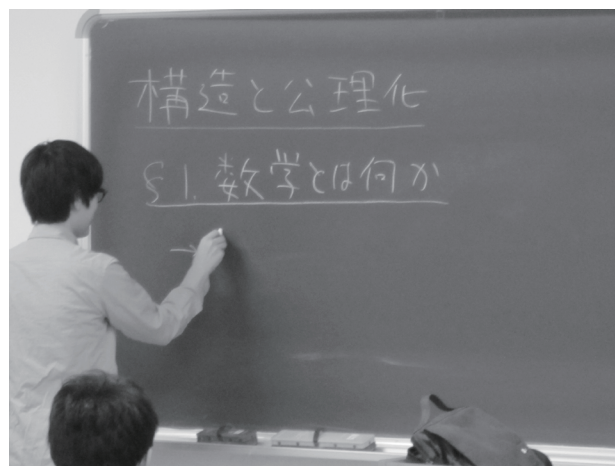 構造と公理化
§1. 数学とは何か
→